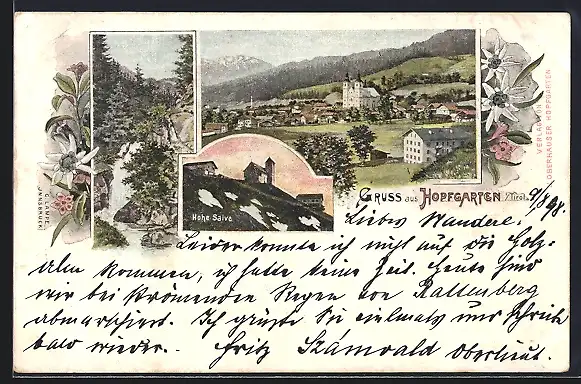 GRUSS aus HOPFGARTEN i/Tirol.
9/8 98.
Hohe Salve
C. LAMPE, INNSBRUCK.
VERLAG VON
OBERHAUSER HOPFGARTEN
Liebes
Leider konnte ich nicht auf die Holz-
alm kommen, ich hatte keine Zeit. Heute sind
wir bei strömenden Regen von Rattenberg
abmarschiert. Ich grüße Sie vielmals und schreibe
bald wieder. Fritz Oberleut.